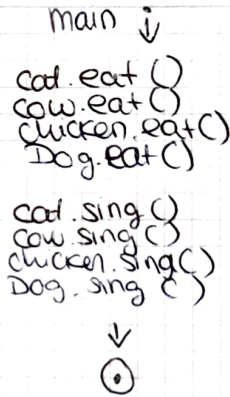 main
cat.eat()
cow.eat()
chicken.eat()
Dog.eat()
cat.sing()
cow.sing()
chicken.sing()
Dog.sing()